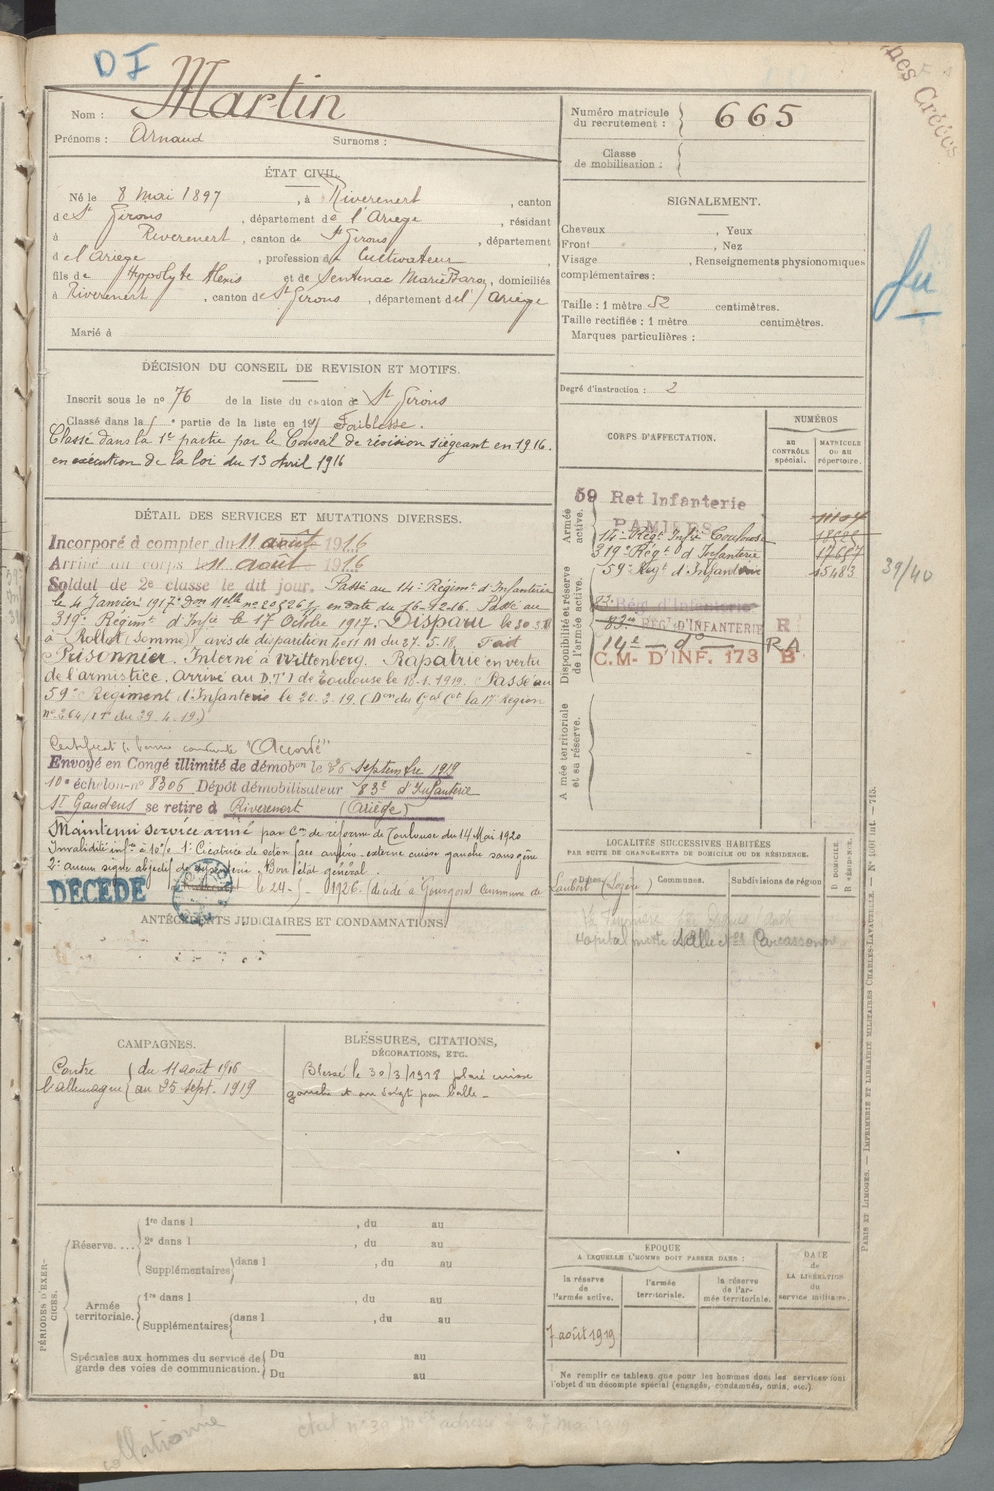 D I
Nom : Martin
Prénoms : Arnaud Surnoms :
Numéro matricule du recrutement : 665
Classe de mobilisation :
ÉTAT CIVIL.
Né le 8 mai 1897, à Riverenert, canton
de St Girons, département de l'Ariège, résidant
à Riverenert, canton de St Girons, département
de l'Ariège, profession de Cultivateur
fils de Hyppolyte Alexis et de Sentenac Marie, domiciliés
à Riverenert, canton de St Girons, département de l'Ariège
Marié à
SIGNALEMENT.
Cheveux , Yeux
Front , Nez
Visage , Renseignements physionomiques
complémentaires :
Taille : 1 mètre 52 centimètres.
Taille rectifiée : 1 mètre centimètres.
Marques particulières :
Degré d'instruction : 2
DÉCISION DU CONSEIL DE REVISION ET MOTIFS.
Inscrit sous le no 76 de la liste du canton de St Girons
Classé dans la partie de la liste en 19 Faiblesse.
Classé dans la 1e partie par le Conseil de révision siégeant en 1916.
en exécution de la loi du 13 Avril 1916
DÉTAIL DES SERVICES ET MUTATIONS DIVERSES.
Incorporé à compter du 11 août 1916
Arrivé au corps le 11 août 1916
Soldat de 2e classe le dit jour. Passé au 14e Régiment d'Infanterie
le 4 Janvier 1917 en date du 16-12-16. Passé au
319e Régimt d'Infie le 17 Octobre 1917. Disparu le 30.3.18
à Rollot (Somme) avis de disparition du 27.5.18. Fait
Prisonnier. Interné à Wittenberg. Rapatrié en vertu
de l'armistice. Arrivé au D.T.I de Toulouse le 18.1.1919. Passé au
59e Régiment d'Infanterie le 20.2.19. (Don du Gal Ct la 17e Région
no 264/1T du 29.4.19.)
Certificat de bonne conduite "Accordé"
Envoyé en Congé illimité de démobon le 26 septembre 1919
10e échelon no 8306 Dépôt démobilisateur 83e d'Infanterie
St Gaudens se retire à Riverenert (Ariège)
Maintenu service armé par Con de réforme de Toulouse du 14 Mai 1920
Invalidité infre à 10% 1o Cicatrice de séton face antéro-externe cuisse gauche sans gêne
2o aucun signe objectif de dysenterie. Bon état général.
DÉCÉDÉ le 29 1926 (décédé à Gourgons commune de Laubert (Lozère)
ANTÉCÉDENTS JUDICIAIRES ET CONDAMNATIONS.
CORPS D'AFFECTATION.
NUMÉROS
au CONTRÔLE spécial.
MATRICULE ou au répertoire.
Armée active.
59 Ret Infanterie
PAMIERS
14e Régt Infie Toulouse
319e Régt d'Infanterie 17657
59e Régt d'Infanterie 15483
Disponibilité et réserve de l'armée active.
Régt d'Infanterie
83me REGt D'INFANTERIE R
14e do RA
C.M. D'INF. 173 B
Armée territoriale et sa réserve.
39/40
LOCALITÉS SUCCESSIVES HABITÉES
PAR SUITE DE CHANGEMENTS DE DOMICILE OU DE RÉSIDENCE.
Dates. Communes. Subdivisions de région D DOMICILE. R RÉSIDENCE.
Hôpital mixte Carcassonne
CAMPAGNES.
Contre l'Allemagne du 11 août 1916
au 25 sept. 1919
BLESSURES, CITATIONS,
DÉCORATIONS, ETC.
Blessé le 30/3/1918 plaie cuisse
gauche et au doigt par balle
PÉRIODES D'EXERCICES.
Réserve....
1re dans l , du au
2e dans l , du au
Supplémentaires dans l , du au
Armée territoriale.
1re dans l , du au
Supplémentaires dans l , du au
Spéciales aux hommes du service de garde des voies de communication.
Du au
Du au
ÉPOQUE
A LAQUELLE L'HOMME DOIT PASSER DANS :
la réserve de l'armée active.
l'armée territoriale.
la réserve de l'armée territoriale.
DATE de LA LIBÉRATION du service militaire.
7 août 1919
Ne remplir ce tableau que pour les hommes dont les services font
l'objet d'un décompte spécial (engagés, condamnés, omis, etc.).
PARIS ET LIMOGES. — IMPRIMERIE ET LIBRAIRIE MILITAIRES CHARLES-LAVAUZELLE. — No 1601 int. — 713.
collationné